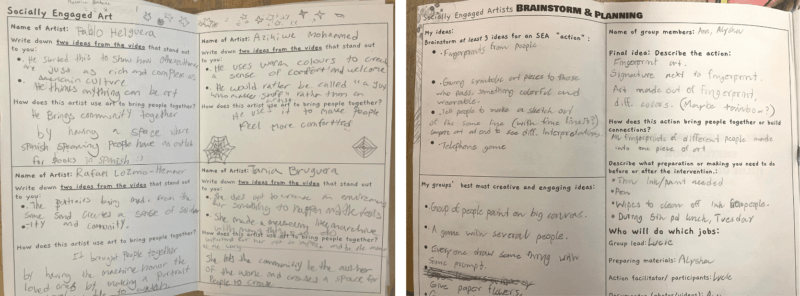 Socially Engaged Art
Name of Artist: Pablo Helguera
Write down two ideas from the video that stand out
to you:
• He started this to show how other
are just as rich and complex as
american culture
• He thinks anything can be art
How does this artist use art to bring people together?
He Brings community together
by having a space where
spanish speaking people have an outlet
for books in spanish :)
Name of Artist: Rafael Lozano-Hemmer
Write down two ideas from the video that stand out
to you:
• The portraits being made from the
same sand creates a sense of
and community.
How does this artist use art to bring people together?
It brought people together
by having the machine honor the
loved ones by making a portrait
Name of Artist: Azikiwe Mohammed
Write down two ideas from the video that stand out
to you:
• He uses warm colours to create
a sense of comfort and welcome
• He would rather be called "a guy
who makes stuff" rather than an
How does this artist use art to bring people together?
He uses it to make people
feel more comforted
Name of Artist: Tania Bruguera
Write down two ideas from the video that stand out
to you:
• She
for something to happen
• She made a
How does this artist use art to bring people together?
She lets the community be the author
of the work and creates a space for
people to create
Socially Engaged Artists BRAINSTORM & PLANNING
My ideas:
Brainstorm at least 3 ideas for an SEA "action":
• Fingerprints from people
• Giving symbolic art pieces to those
who pass, something colorful and
memorable.
• people to make a sketch out
of the same line (with time limit?)
to see diff. interpretations
• Telephone game
My groups' best most creative and engaging ideas:
• Group of people paint on big canvas.
• A game with several people.
• Everyone draw same thing with
same prompt.
Give paper flowers.
Name of group members: Ana, Alysha
Final idea: Describe the action:
Fingerprint art.
Signature next to fingerprint.
Art made out of fingerprint,
diff. colors. (Maybe rainbow?)
How does this action bring people together or build
connections?
fingerprints of different people made
into one piece of art
Describe what preparation or making you need to do
before or after the intervention.:
ink/paint needed
• Pen
• Wipes to clean off ink people.
• During 5th pd lunch, Tuesday
Who will do which jobs:
Group lead: Lucie
Preparing materials: Alysha
Action facilitator/ participants: Lucie